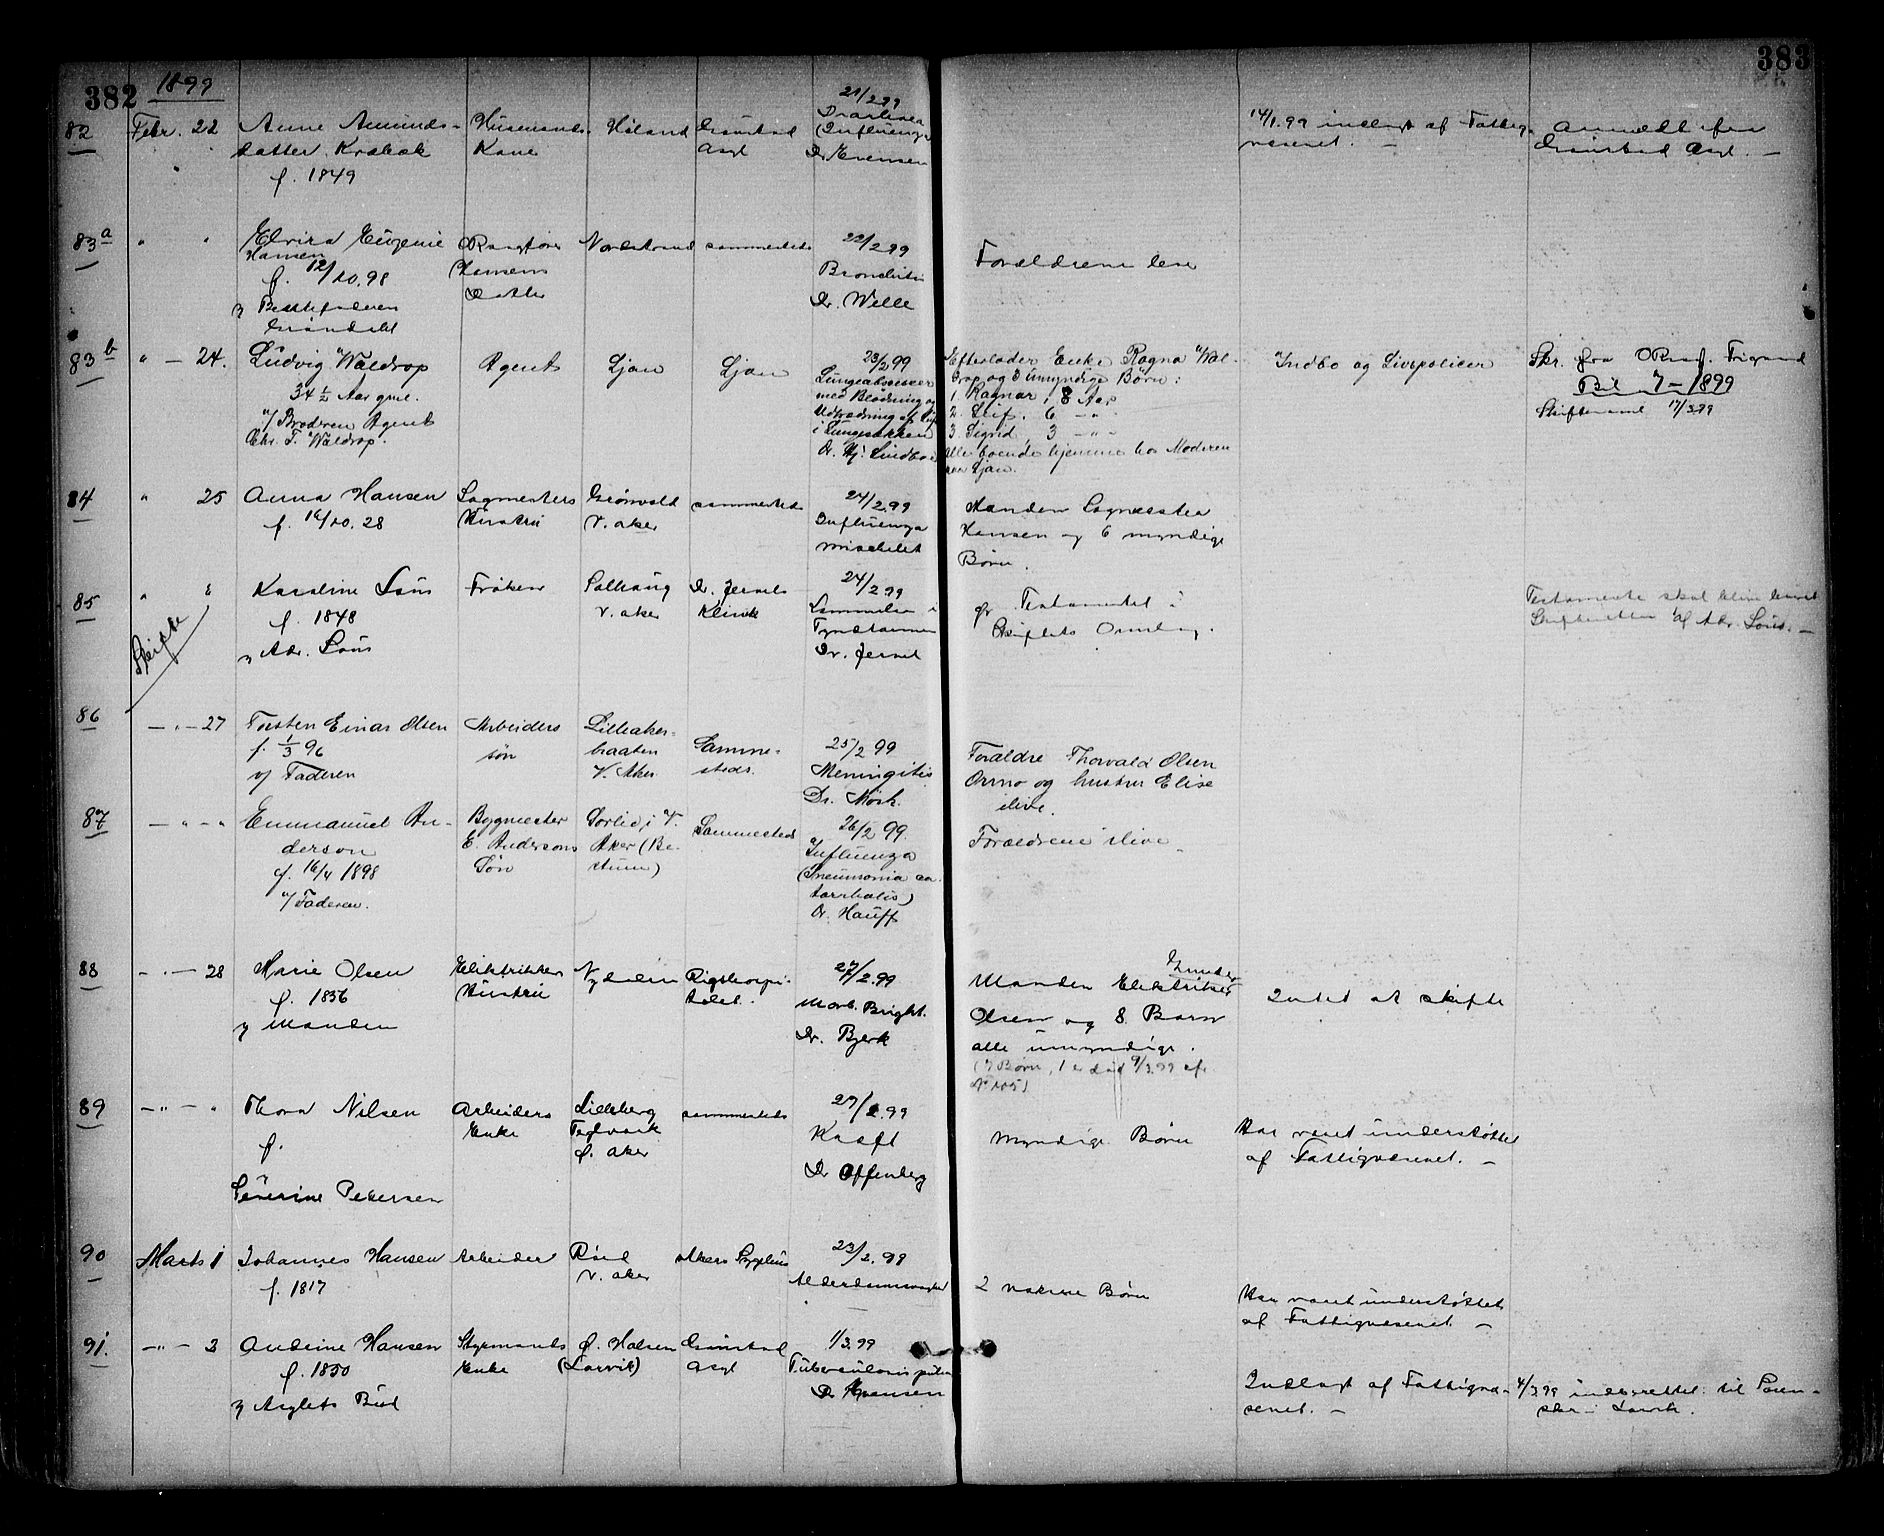 382
1899
383
82
Febr. 22
Anne Amunds-
datter Krabæk
f. 1849
Husmands
Kone
Høland
Grimstad
Asyl
21/2 99
Diarrhea
(Influenza
Dr Evensen
14/1.99 indlagt af Fattig-
væsenet. —
Anmeldt fra
Grimstad Asyl. —
83a
" "
Elvira Eugenie
Hansen
f. 12/10.98
v/ Bestefaderen
Grøndahl
Hansens
Datter
Nordstrand
sammesteds
22/2 99
Bronchitis
Dr. Welle
Forældrene leve
83b
" — 24.
Ludvig Waldrop
34 1/2 Aar gml.
v/ Broderen Agent
Chr. F. Waldrop.
Agent
Ljan
Ljan
23/2 99
Lungeabscesser
med Blødning og
Udtrædning af Luft
i Lungesækken
Dr. Hj. Lindboe
Efterlader Enke Ragna Wal-
drop og 3 umyndige Børn:
1. Ragnar, 8 Aar
2. Leif, 6 —"—
3. Sigrid, 3 —"—
Alle boende hjemme hos Moderen
paa Ljan.
Indbo og Livspolicer
Skr. fra
Bil 7 — 1899
Skiftesaml 17/3 99
84
" 25
Anna Hansen
f. 16/10.28
Sagmesters
Hustru
Grønvold
V. Aker
sammesteds
24/2.99
Influenza
Manden Sagmester
Hansen og 6 myndige
Børn.
85
" "
Skifte
Karoline Sous
f. 1848
v/ Adv. Sous
Frøken
Solhaug
V. Aker
Dr. Jervels
Klinik
24/2 99
Dr. Jervel
Testamentet i
Skiftets Omslag.
Testamente skal blive leveret
Skifteretten af Adv. Sous. —
86
—"— 27
Torsten Einar Olsen
f. 1/3 96
v/ Faderen
Arbeiders
søn
Lilleaker-
braaten
V. Aker
Samme-
steds.
25/2 99
Meningitis
Dr. Mörk.
Forældre Thorvald Olsen
Ormo og hustru Elise
ilive.
87
— " — "
Emmanuel An-
derson
f. 16/4 1898
v/ Faderen.
Bygmester
E. Andersons
Søn
Sorlid i V.
Aker (Be-
stum)
Sammesteds
26/2 99.
Influenza
(Pneumonia ca-
tarrhalis)
Dr. Hauff
Forældrene ilive.
88
—"— 28
Marie Olsen
f. 1856
v/ Manden
Elektrikker
Hustru
Nydalen
Rigshospi-
talet.
27/2.99
Morb. Bright.
Dr. Bjerk
Gunder
Manden Elektriker
Olsen og 8 Barn
alle umyndige.
(7 Børn, 1 er død 9/3.99 cfr.
No 105)
Intet at skifte
89
—"— "
Thora Nilsen
f.
Severine Petersen
Arbeiders
Enke
Lilleberg
Teglverk
Ø. Aker
sammesteds
27/2.99
Kræft
Dr Offenberg
Myndige Børn
Har været understøttet
af Fattigvæsenet. —
90
Marts 1
Johannes Hansen
f. 1817
Arbeider
Røed
V. Aker
Akers Sygehus
23/2.99
Alderdomssvaghed
2 voksne Børn
Har været understøttet
af Fattigvæsenet. —
91.
—"— 3
Andrine Hansen
f. 1850
v/ Asylets Bud
Styrmands
Enke
Ø. Halsen
(Larvik)
Grimstad
Asyl
1/3.99
Tuberculosis pulm
Dr Evensen
Indlagt af Fattigvæ-
senet. —
4/3 99 indberettet til Soren-
skr i Larvik.